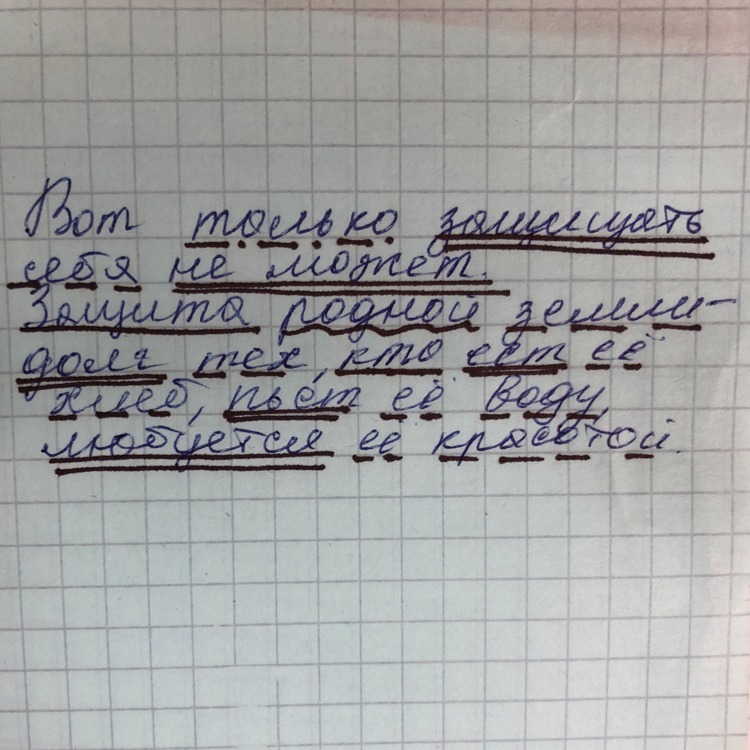 Вот только защищать
себя не может.
Защита родной земли-
долг тех, кто ест её
хлеб, пьёт её воду,
любуется её красотой.